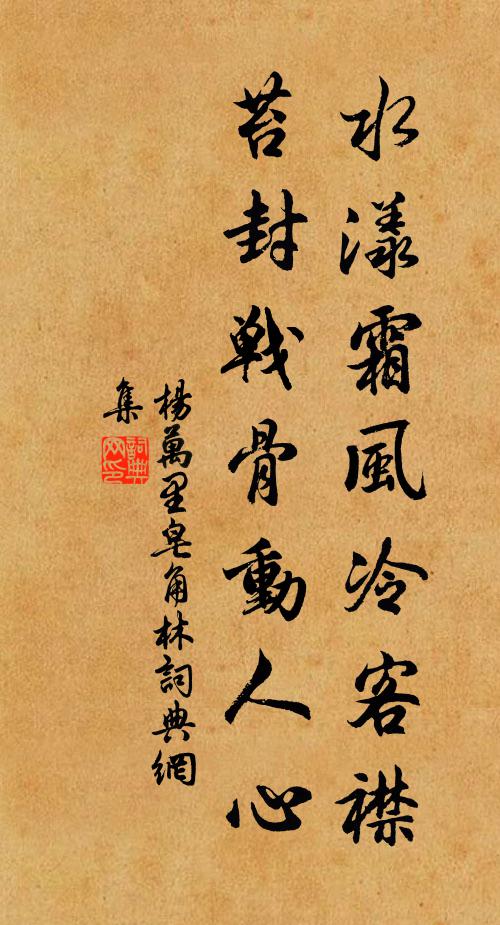 水漾霜風冷客襟
苔封戦骨動人心
楊萬里皂角林詞典網
集
詞典
网印